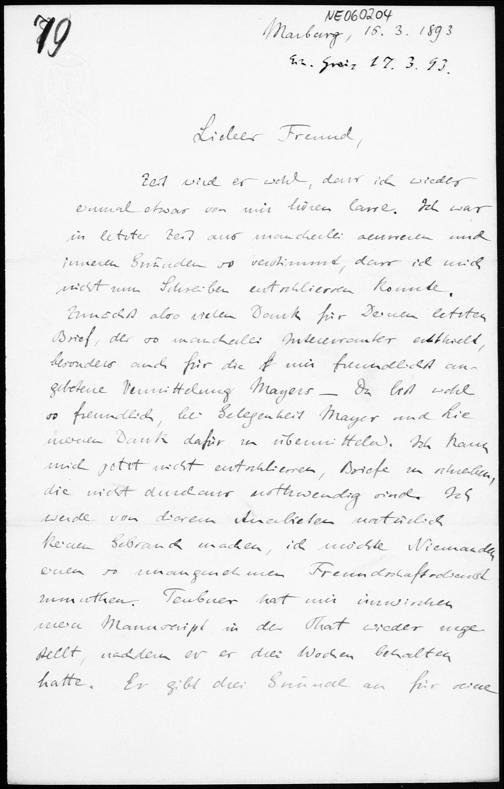 79
NE060204
Marburg, 15. 3. 1893
Ein. Greiz 17. 3. 93.
Lieber Freund,
Zeit wird es wohl, dass ich wieder
einmal etwas von mir hören lasse. Ich war
in letzter Zeit aus mancherlei aeusseren und
inneren Gründen so verstimmt, dass ich mich
nicht zum Schreiben entschliessen konnte.
Zunächst also vielen Dank für Deinen letzten
Brief, der so mancherlei Interessantes enthielt,
besonders auch für die mir freundlichst an-
gebotene Vermittelung Mayers — Du bist wohl
so freundlich, bei Gelegenheit Mayer und Lie
meinen Dank dafür zu übermitteln. Ich kann
mich jetzt nicht entschliessen, Briefe zu schreiben,
die nicht durchaus nothwendig sind. Ich
werde von diesem Anerbieten natürlich
keinen Gebrauch machen, ich möchte Niemanden
einen so unangenehmen Freundschaftsdienst
zumuthen. Teubner hat mir inzwischen
mein Manuscript in der That wieder zuge
stellt, nachdem er es drei Wochen behalten
hatte. Er gibt drei Gründe an für seine